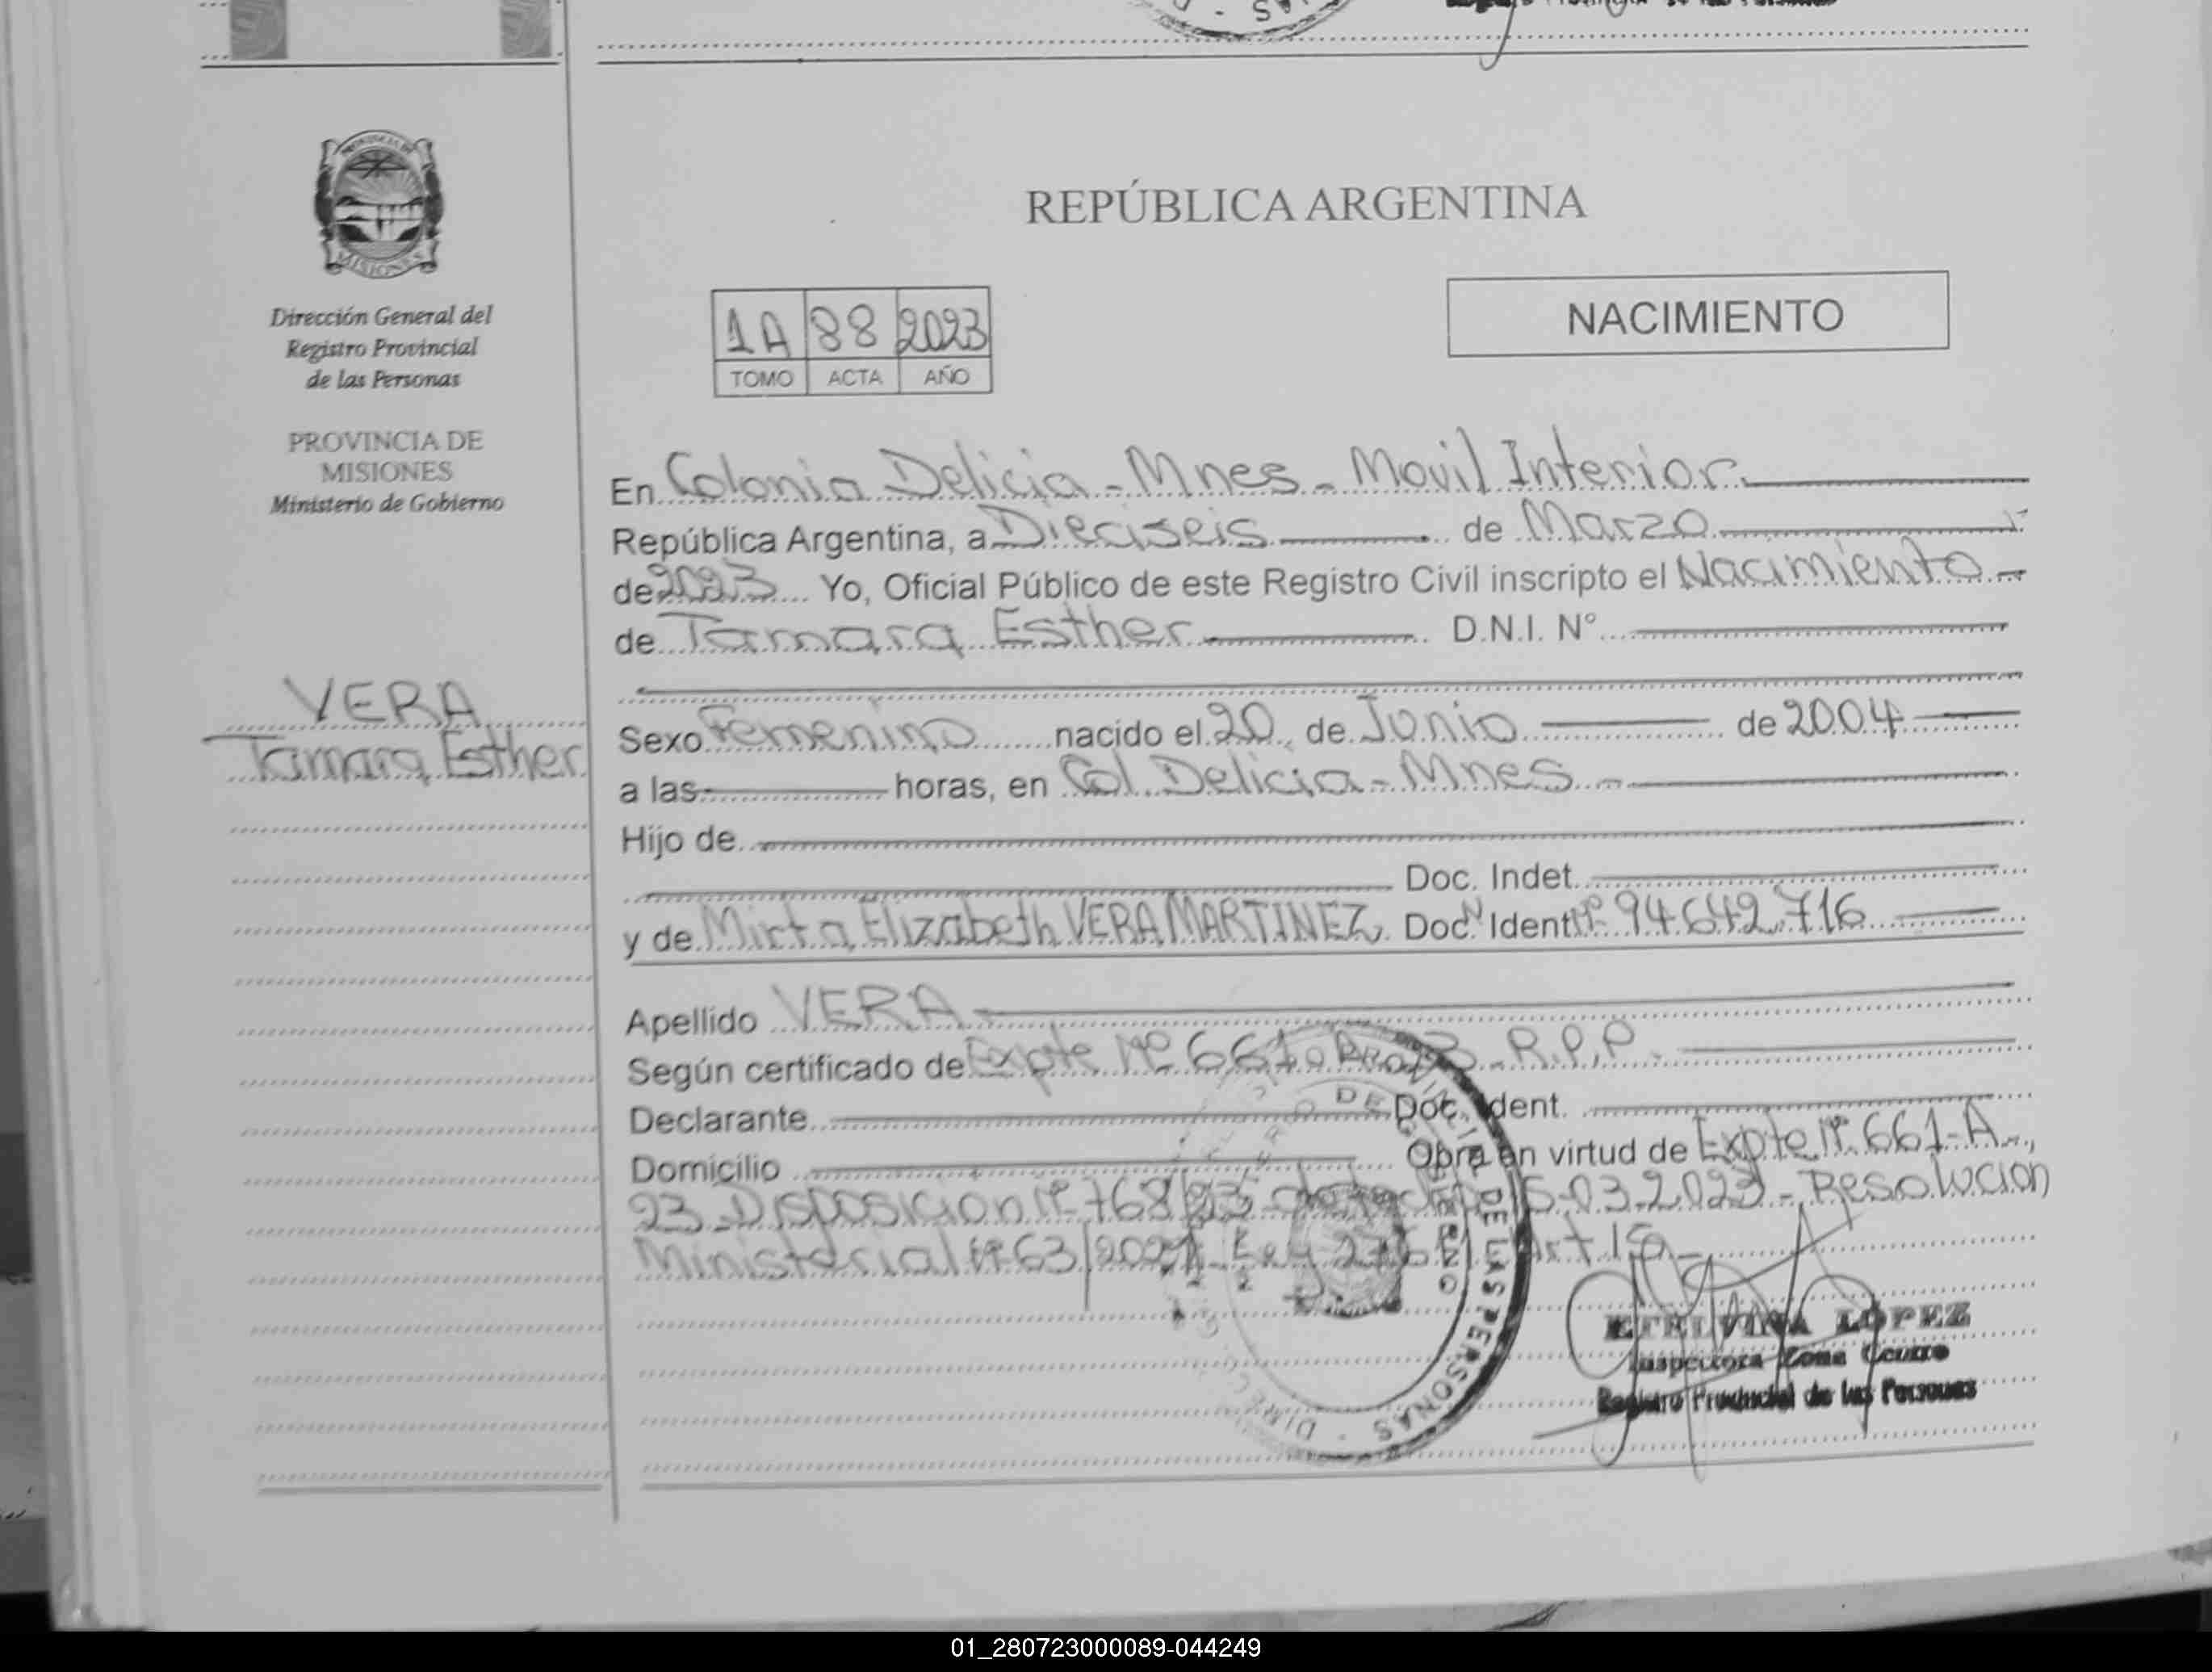 REPÚBLICA ARGENTINA
MISIONES
Dirección General del
Registro Provincial
de las Personas
PROVINCIA DE
MISIONES
Ministerio de Gobierno
1A 88 2023
TOMO ACTA AÑO
NACIMIENTO
En Colonia Delicia - Mnes - Movil Interior
República Argentina, a Dieciseis de Marzo
de 2023 Yo, Oficial Público de este Registro Civil inscripto el Nacimiento
de Tamara Esther D.N.I. N°
VERA
Tamara Esther
Sexo Femenino nacido el 20 de Junio de 2004
a las horas, en Col. Delicia - Mnes -
Hijo de
Doc. Indet.
y de Mirta Elizabeth VERA MARTINEZ Doc. Ident. Nº 94642716
Apellido VERA
Según certificado de Expte Nº 661 R.P.P.
Declarante Doc. Ident.
Domicilio Obra en virtud de Expte Nº 661-A-
23 Disposicion Nº 768/23 03-2023 - Resolucion
Ministerial Nº 63/2021 Ley Art
DE LAS PERSONAS
ETELVINA LOPEZ
Inspectora Zona Centro
Registro Provincial de las Personas
01_280723000089-044249